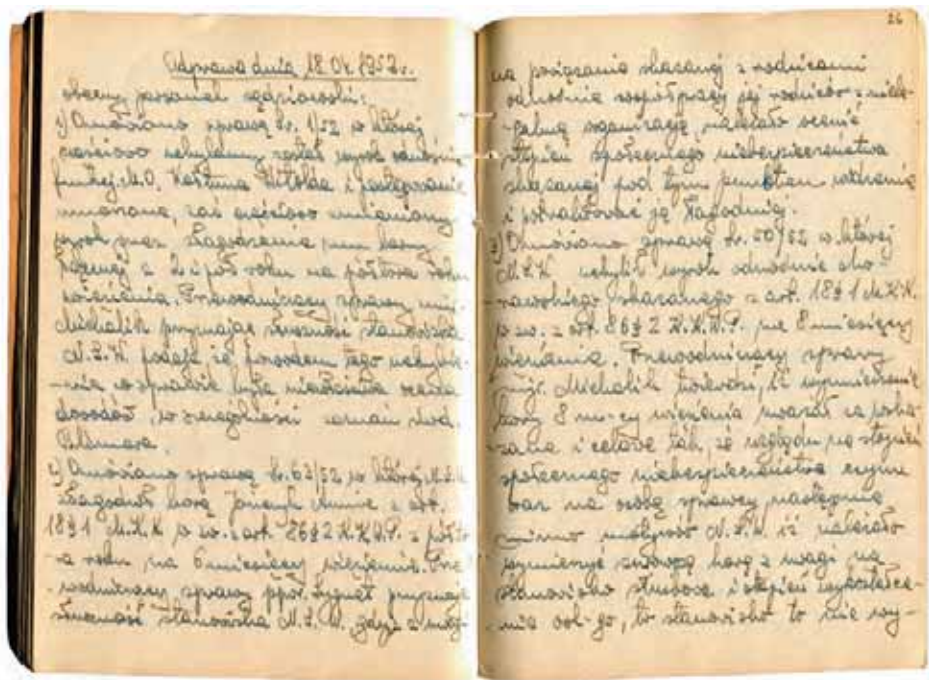 Odprawa dnia 18.04.1952 r.
obecny personel sędziowski:
1) Omówiono sprawę Sr. 1/52 w której
częściowo uchylony został wyrok odnośnie
funkcj. M.O. Witolda i postępowanie
umorzono, zaś częściowo zmieniony
wyrok przez złagodzenie kary
z 2 i pół roku na półtora roku
więzienia. Przewodniczący sprawy mjr.
Michalik przyznając słuszność stanowiska
N.S.W. podaje że powodem tego uchyle-
-nia w sprawie była niewłaściwa ocena
dowodów, w szczególności zeznań świad.
2) Omówiono sprawę Sr. 63/52 w której N.S.W.
złagodził karę Annie z art.
18§1 M.K.K. w zw. z art. 86§2 K.K.W.P. z półto-
-ra roku na 6 miesięcy więzienia. Prze-
-wodniczący sprawy ppor. przyznaje
słuszność stanowiska N.S.W., gdyż z uwagi
26
na powiązania skazanej z rodzicami
odnośnie współpracy jej rodziców z niele-
-galną organizacją, należało ocenić
stopień społecznego niebezpieczeństwa
skazanej pod tym punktem widzenia
i potraktować ją łagodniej.
3) Omówiono sprawę Sr. 50/52 w której
N.S.W. uchylił wyrok odnośnie
skazanego z art. 18§1 M.K.K.
w zw. z art. 86§2 K.K.W.P. na 8 miesięcy
więzienia. Przewodniczący sprawy
mjr. Michalik twierdzi, iż wymierzenie
kary 8 m-cy więzienia uważał za
i celowe tak, ze względu na stopień
społecznego niebezpieczeństwa czynu
oraz na osobę sprawcy następnie
mimo N.S.W. iż należało
wymierzyć surowszą karę z uwagi na
stanowisko służbowe i stopień wykształce-
-nia osk-go, to stanowisko to nie wy-